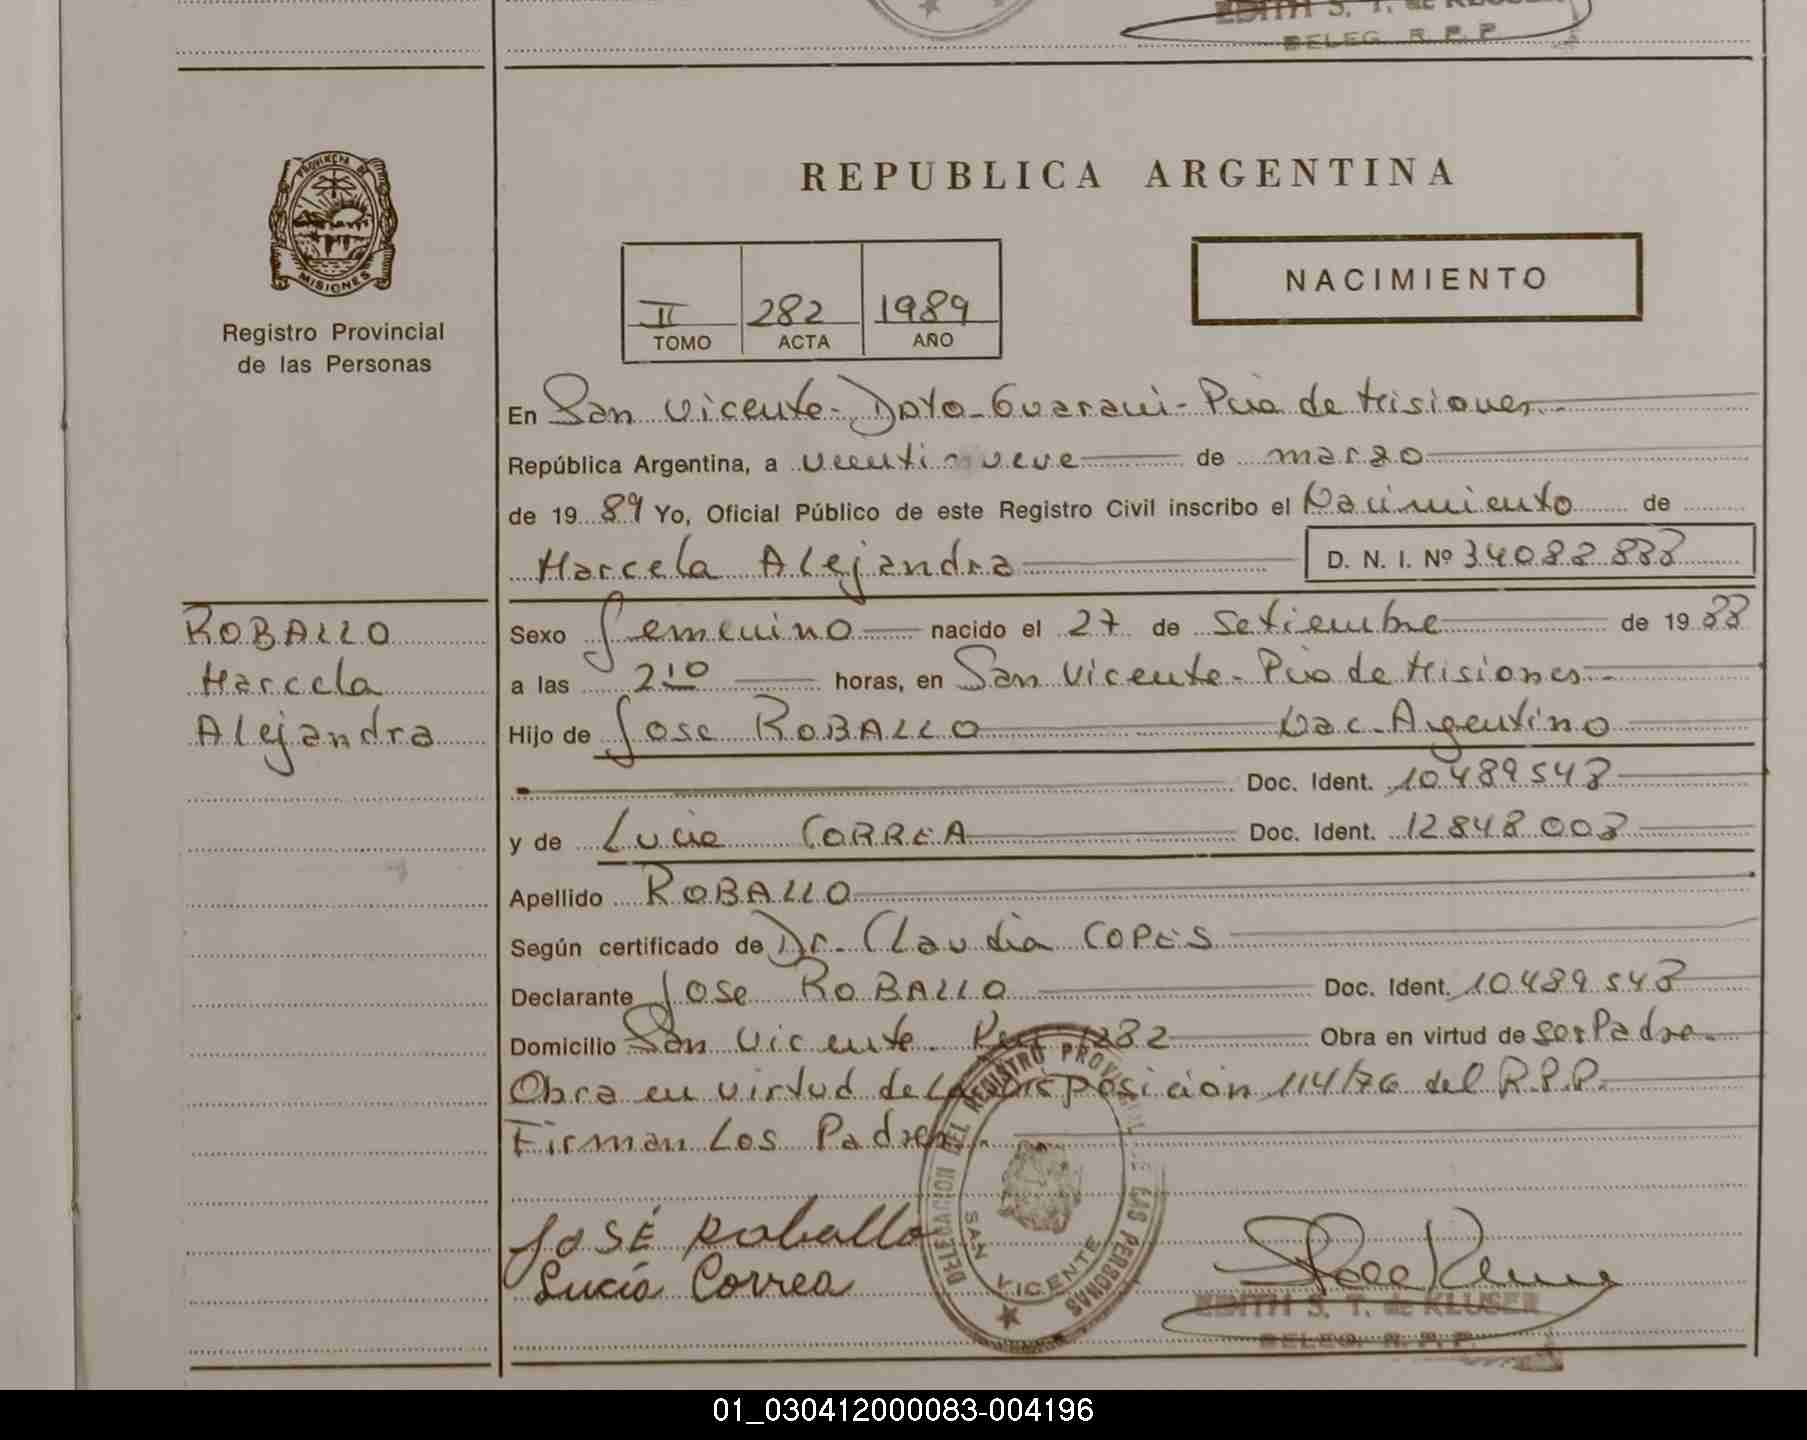 EDITH S. T. de KLUSER
DELEG. R. P. P.
PROVINCIA DE
MISIONES
Registro Provincial
de las Personas
REPUBLICA ARGENTINA
II 282 1989
TOMO ACTA AÑO
NACIMIENTO
En San Vicente - Dpto - Guarani - Pcia de Misiones.-
República Argentina, a veentinueve de marzo
de 1989 Yo, Oficial Público de este Registro Civil inscribo el Nacimiento de
Marcela Alejandra D. N. I. Nº 34088888
ROBALLO
Marcela
Alejandra
Sexo femenino nacido el 27 de setiembre de 1988
a las 2,10 horas, en San Vicente - Pcia de Misiones.-
Hijo de Jose ROBALLO Nac. Argentino
Doc. Ident. 10489548
y de Lucia CORREA Doc. Ident. 12848008
Apellido ROBALLO
Según certificado de Dr. Claudia COPES
Declarante Jose ROBALLO Doc. Ident. 10489548
Domicilio San Vicente. 1282 Obra en virtud de ser Padre.-
Obra en virtud de la Disposición 114/76 del R.P.P.
Firman Los Padres.-
DELEGACION DEL REGISTRO PROVINCIAL DE LAS PERSONAS
SAN VICENTE
JOSÉ Roballo
Lucía Correa
EDITH S. T. de KLUSER
DELEG. R. P. P.
01_030412000083-004196